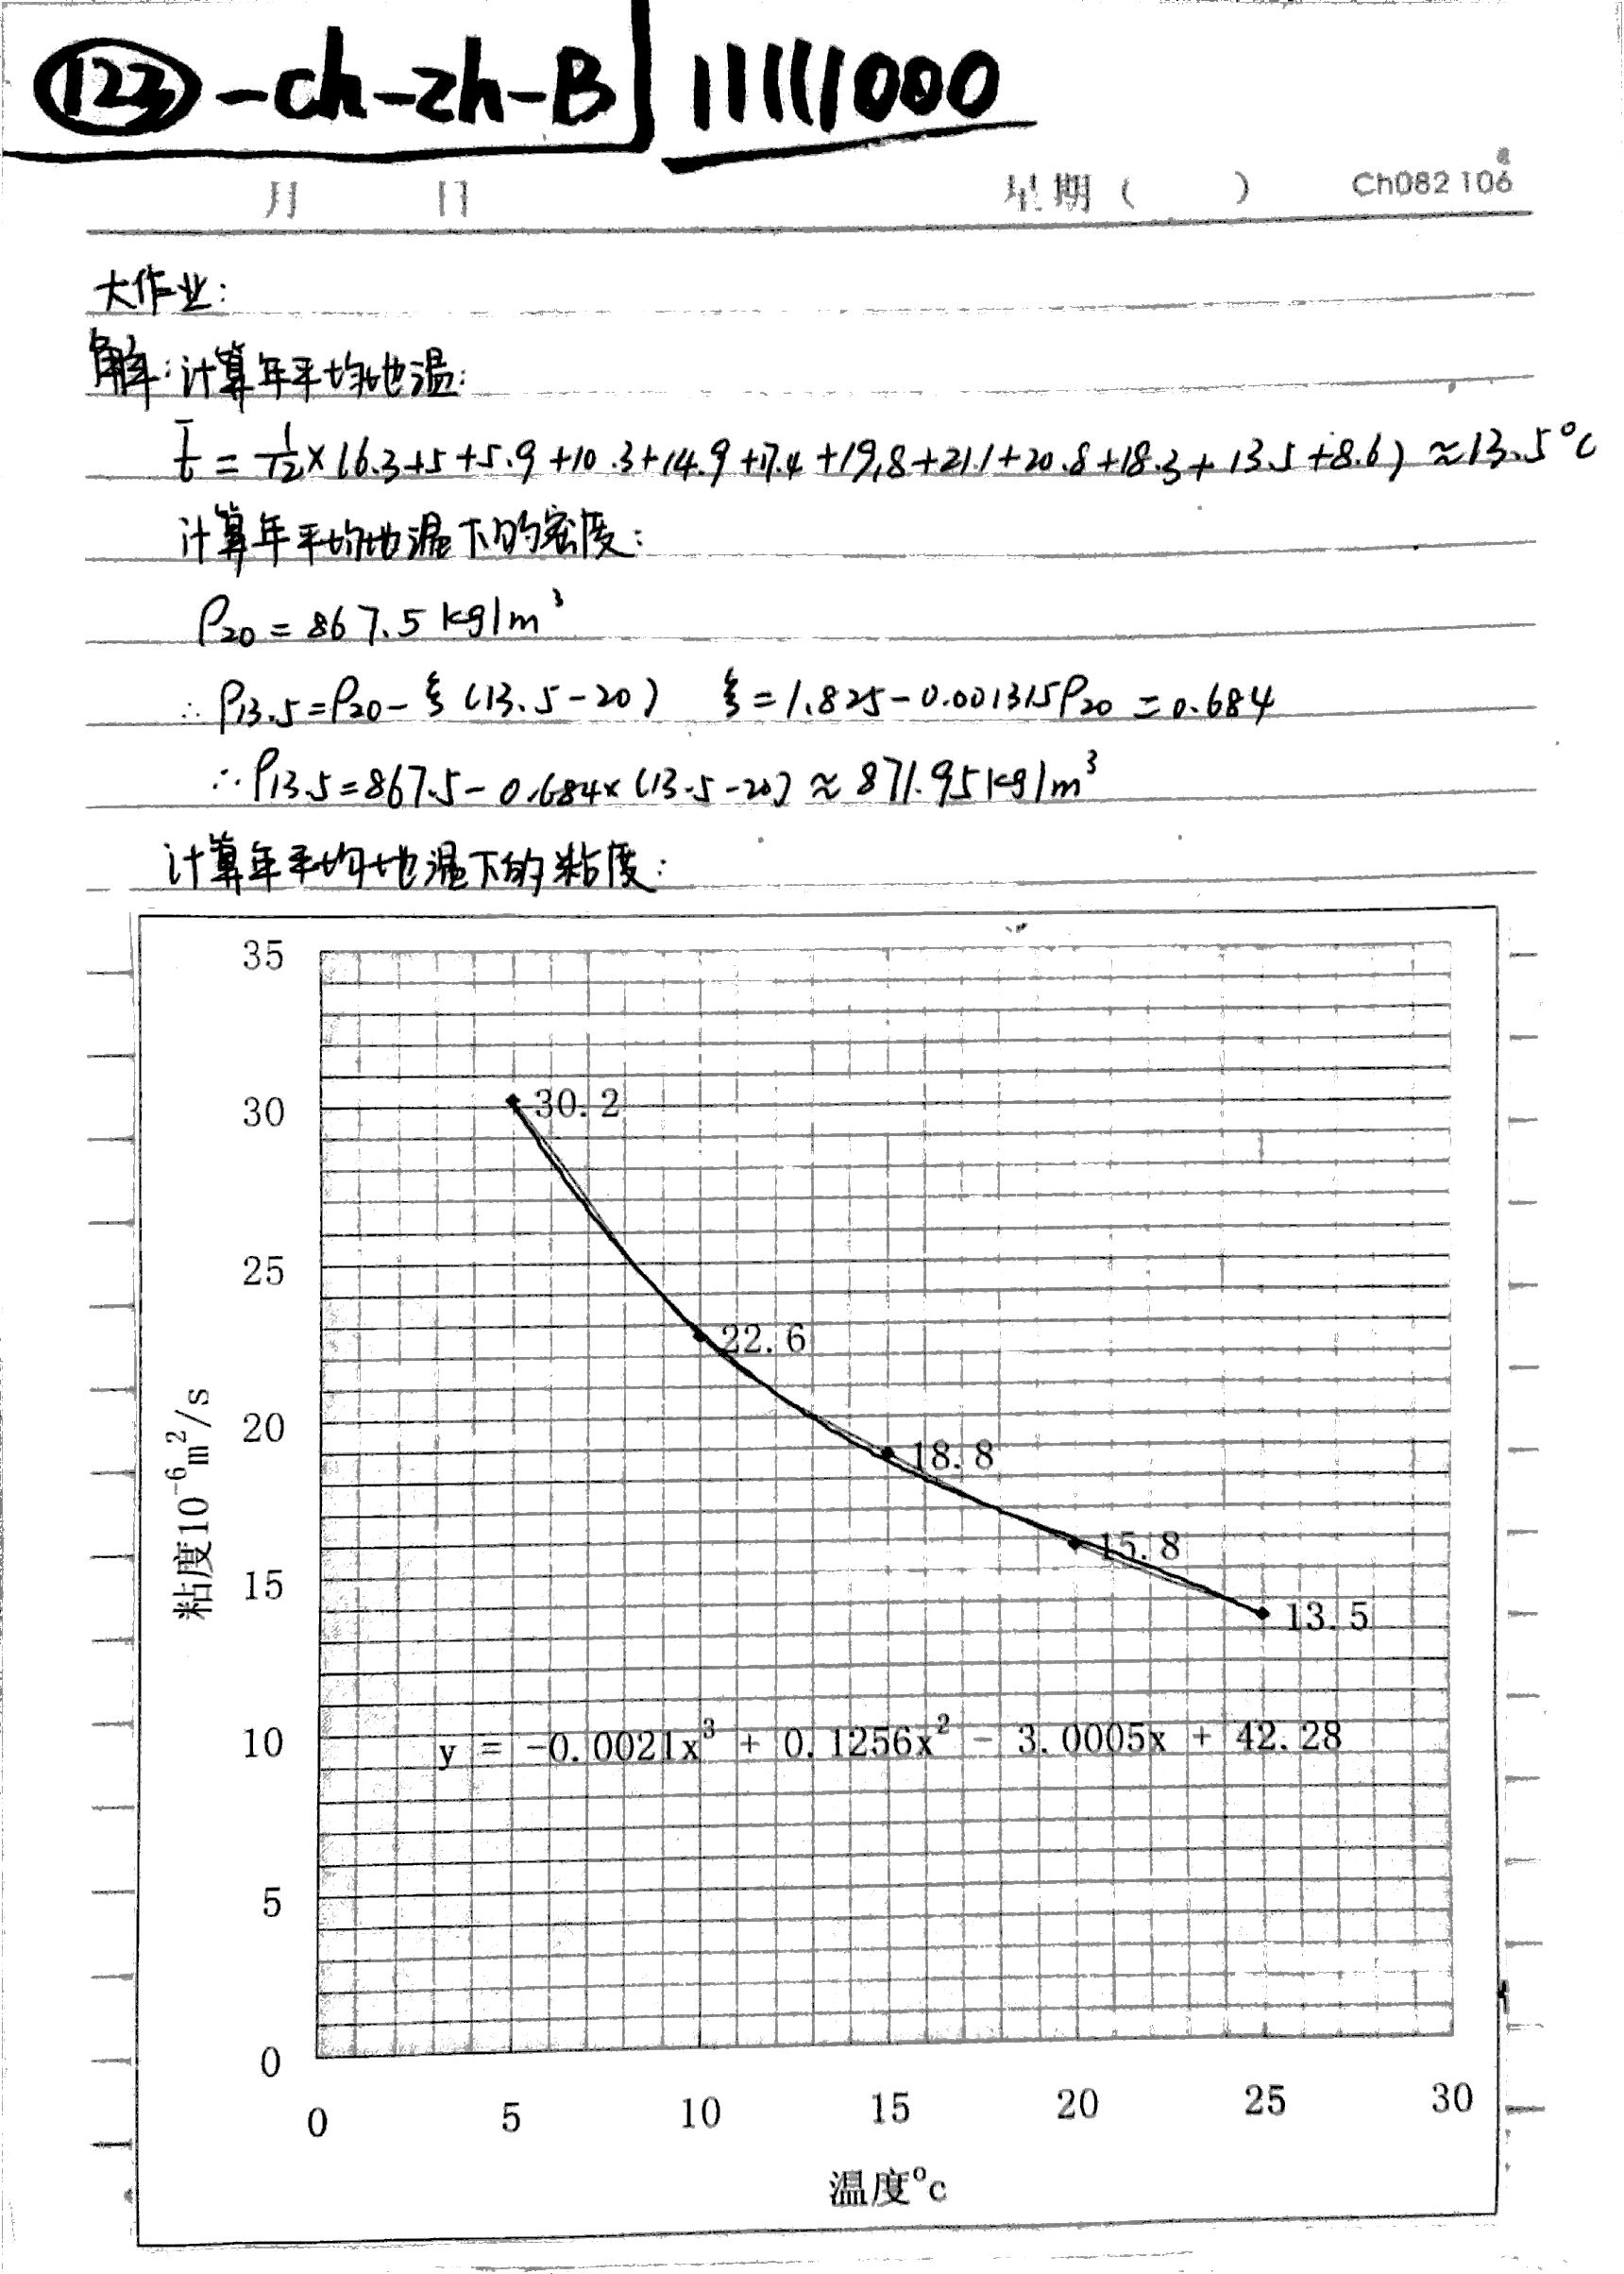 (123)-ch-zh-B 11111000
月 日 星期( ) Ch082106
大作业:
解:计算年平均地温:
t̄ = 1/12×(6.3+5+5.9+10.3+14.9+17.4+19.8+21.1+20.8+18.3+13.5+8.6) ≈13.5°C
计算年平均地温下的密度:
ρ20 = 867.5 kg/m³
∴ρ13.5=ρ20-ξ(13.5-20) ξ=1.825-0.001315ρ20 = 0.684
∴ρ13.5=867.5-0.684×(13.5-20) ≈ 871.95kg/m³
计算年平均地温下的粘度:
35
30
25
20
15
10
5
0
粘度10⁻⁶m²/s
30.2
22.6
18.8
15.8
13.5
y = -0.0021x³ + 0.1256x² - 3.0005x + 42.28
0 5 10 15 20 25 30
温度°c